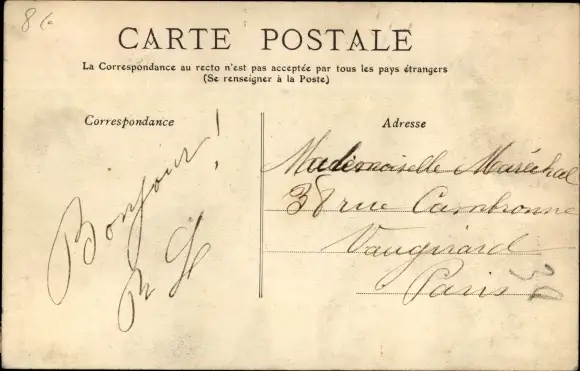 CARTE POSTALE
La Correspondance au recto n'est pas acceptée par tous les pays étrangers
(Se renseigner à la Poste)
Correspondance
Bonjour !
Adresse
Mademoiselle Maréchal
38 rue Cambronne
Vaugirard
Paris